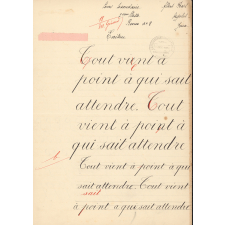 Tout vient à
point à qui sait
attendre. Tout
vient à point à
qui sait attendre
Tout vient à point à qui
sait attendre. Tout vient
sait
à point à que sait attendre